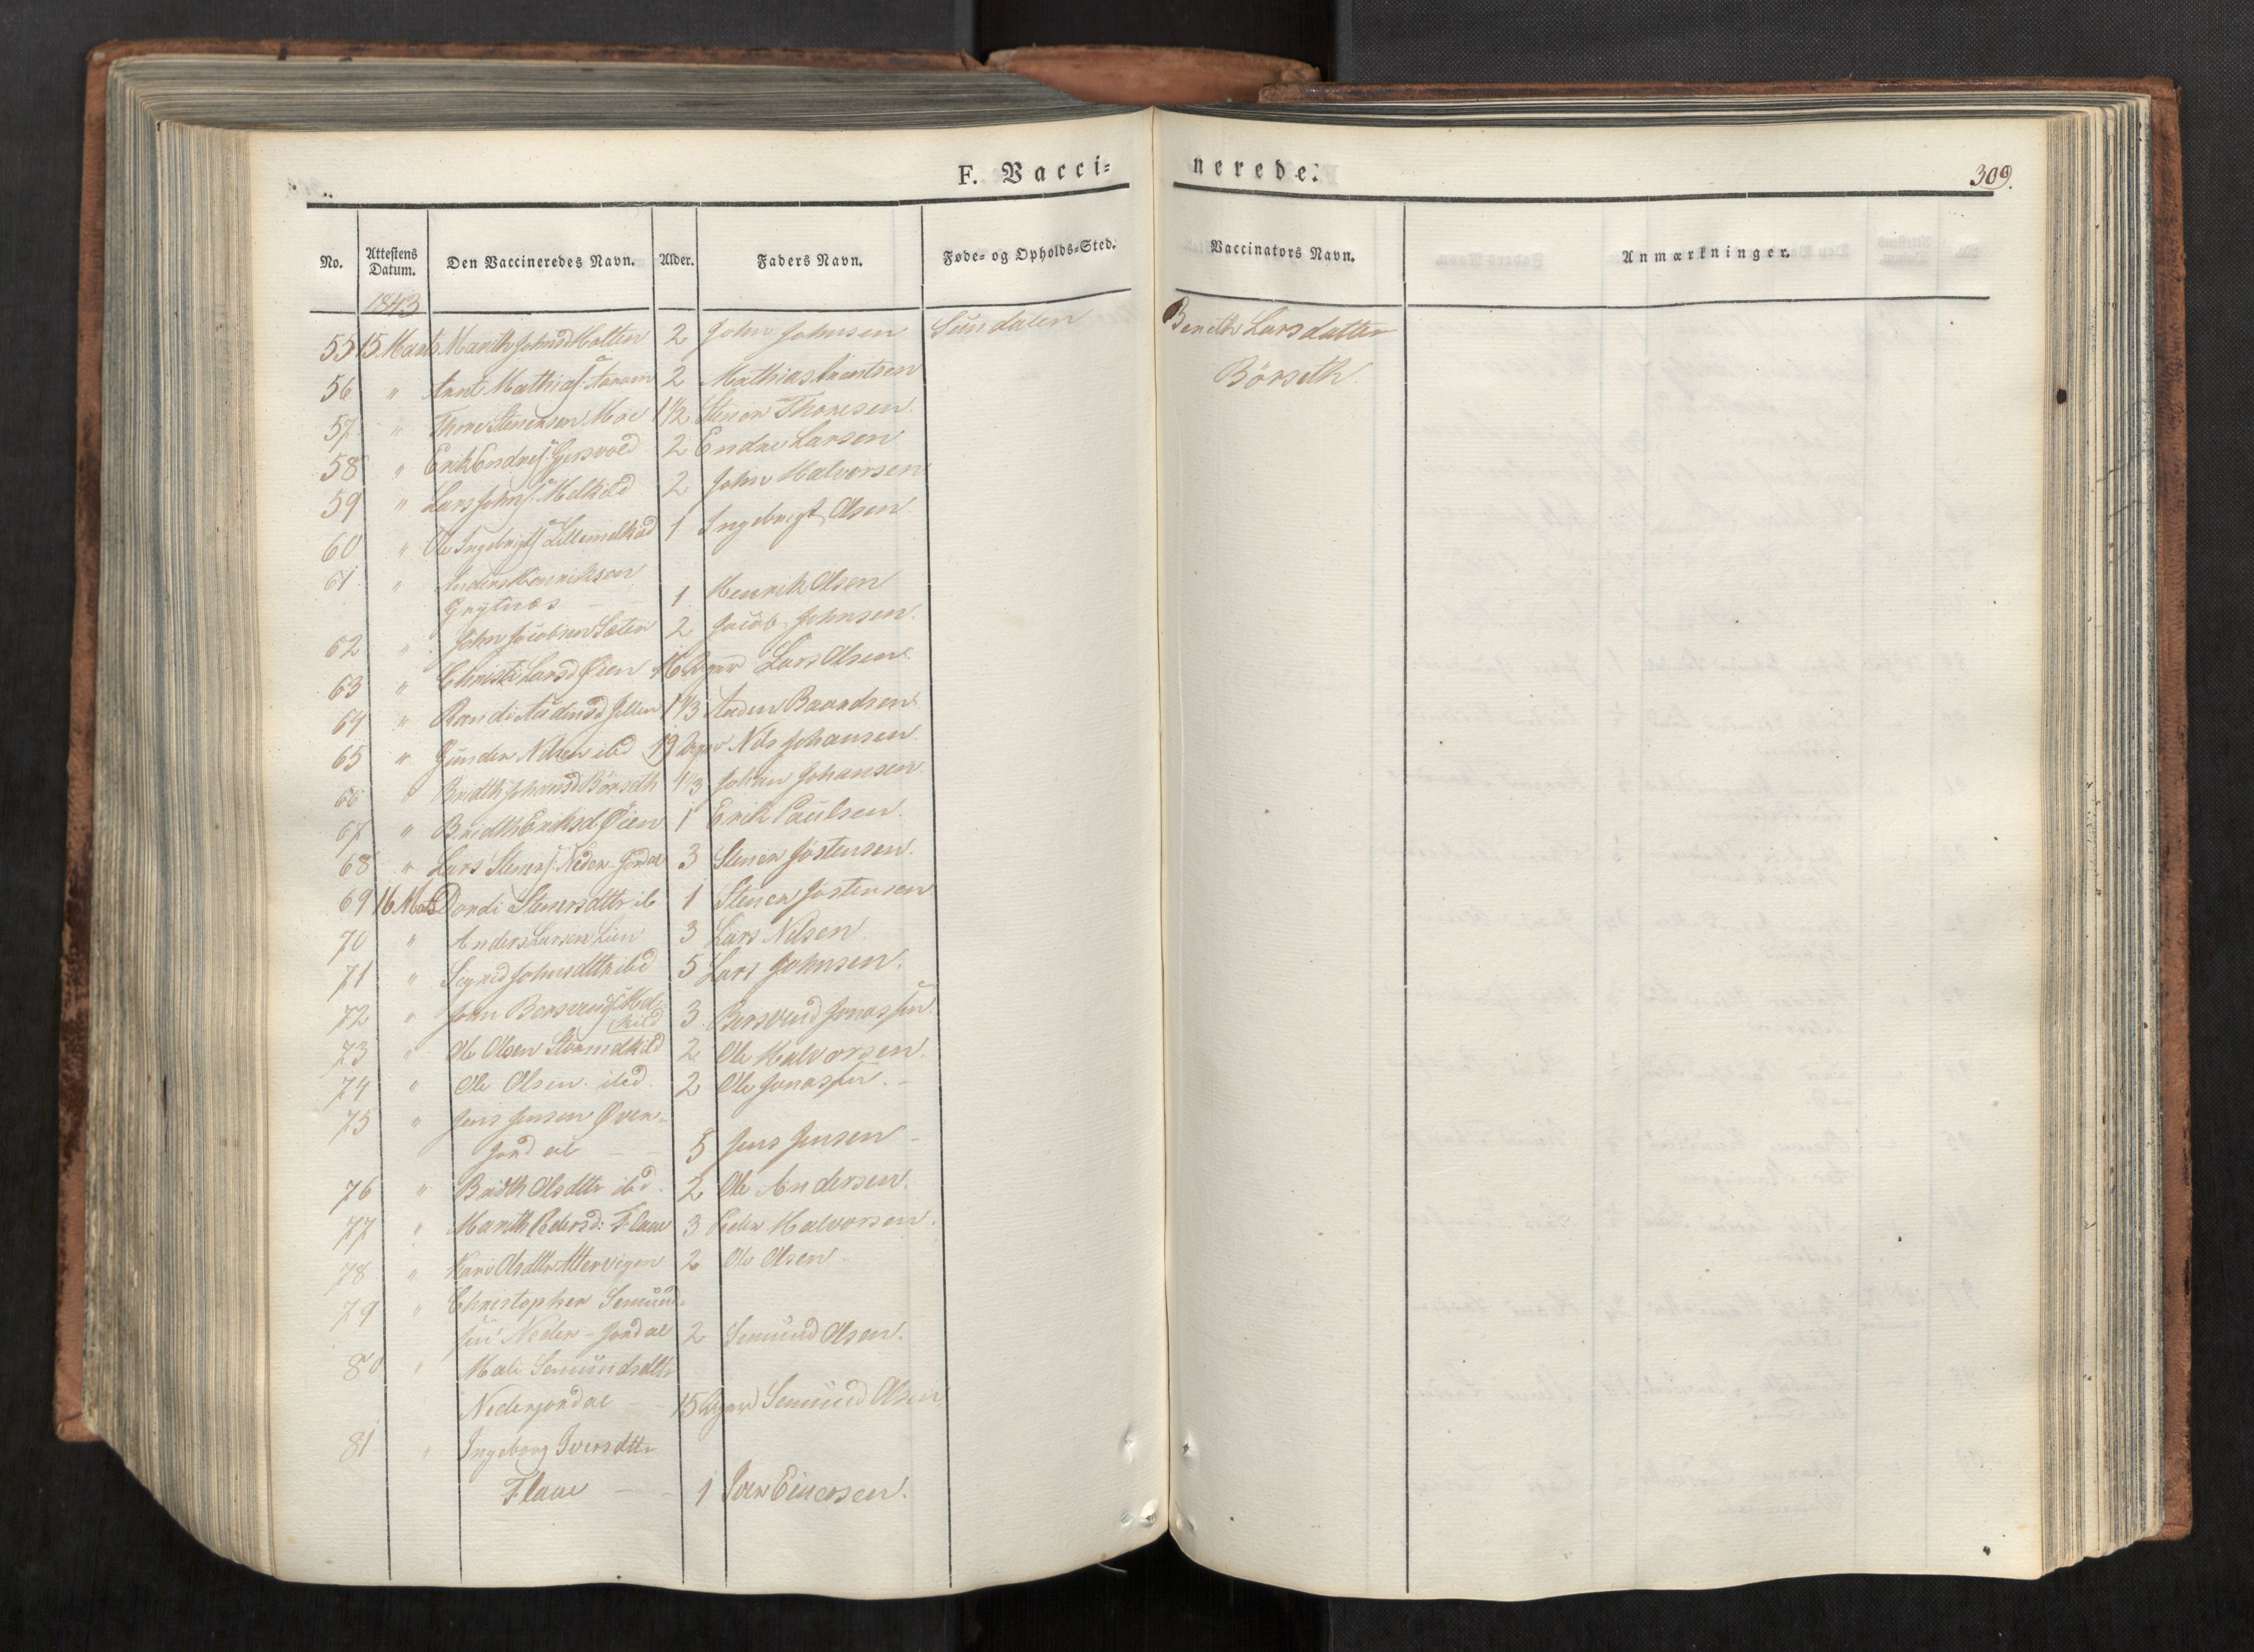 F. Vacci=
nerede.
309.
No. Attestens Datum. Den Vaccineredes Navn. Alder. Faders Navn. Føde- og Opholds-Sted. Vaccinators Navn. Anmærkninger.
1843
55 15 Marts Marith Johnsd Holten 2 John Johnsen Sundalen Bereth Larsdatter
56 " Arnt Mathias 2 Mathias Børseth
57 " Thore Stenersen Moe 1 1/2 Stener Thoresen.
58 " Erik Endres. 2 Endre Larsen
59 " Lars Johns. Melkild 2 John Halvorsen
60 " Ole Ingebrigts 1 Ingebrigt Olsen
61 " Anders Henriksen
Grytnæs 1 Henrik Olsen
62 " John Jacobsen Sæter 2 Jacob Johnsen.
63 " Christi Larsd Øien 16 Uger Lars Olsen.
64 " Randi Audensd Jellen 1 1/3 Auden Baardsen
65 " Gunder Nilsen ibid 19 Uger Nils Johansen.
66 " Bridth Johansd Børseth 1 1/3 Johan Johansen
67 " Bridth Eriksd. Øien 1 Erik Paulsen.
68 " Lars Steners. Neder-Jordal 3 Stener Jostensen.
69 16 Marts Dordi Stenersdttr ib 1 Stener Jostensen
70 " Anders Larsen Lien 3 Lars Nilsen
71 " Sigrid Johnsdttr ibid 5 Lars Johnsen.
72 " John Bersvends. Mel-
kild 3 Bersvend Jonassen.
73 " Ole Olsen Stormelkild 2 Ole Halvorsen.
74 " Ole Olsen. ibid. 2 Ole Jonassen. -
75 " Jens Jensen Øver-
Jordal - - 5 Jens Jensen -
76 " Bridth Olsdttr ibid. 2 Ole Andersen.
77 " Marith Pedersd: Flaae 3 Peder Halvorsen.
78 " Kari Olsdttr 2 Ole Olsen.
79 " Christopher Semund-
sen Neder-Jordal 2 Semund Olsen.
80 " Mali Semundsdttr
Nederjordal - - 15 Uger Semund Olsen
81 " Ingeborg Iversdttr
Flaae - - 1 Iver Einersen.